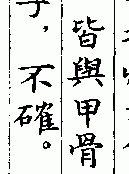 皆與甲骨
，不確。